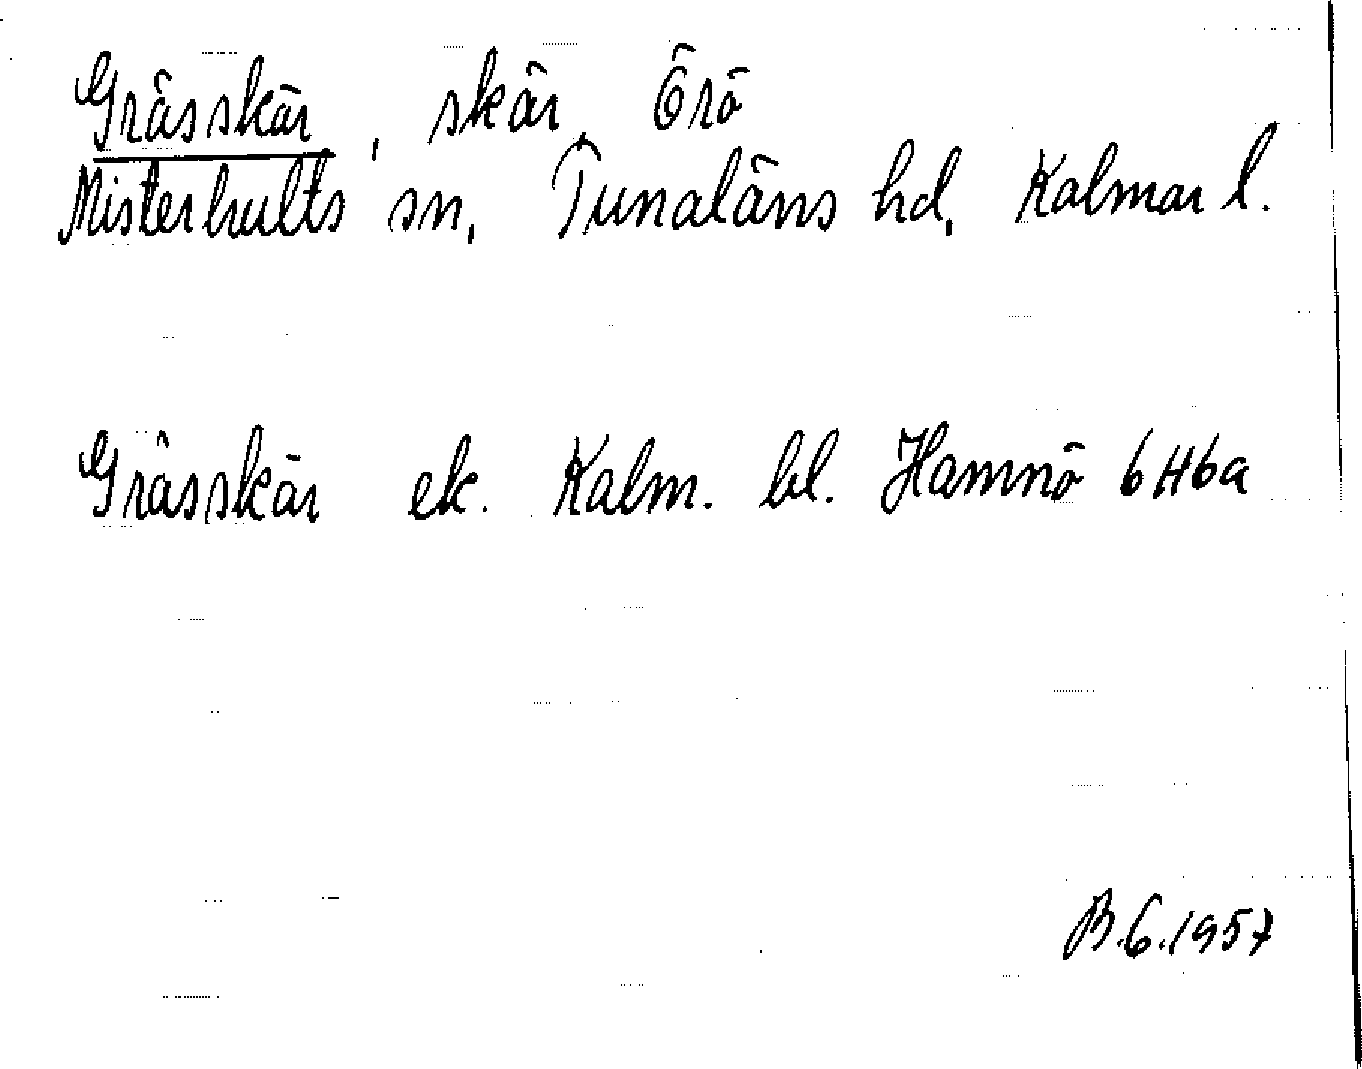 Grässkär, skär, Örö
Misterhults sn, Tunaläns hd, Kalmar l.
Grässkär ek. Kalm. bl. Hamnö 6H6a
B.G.1957